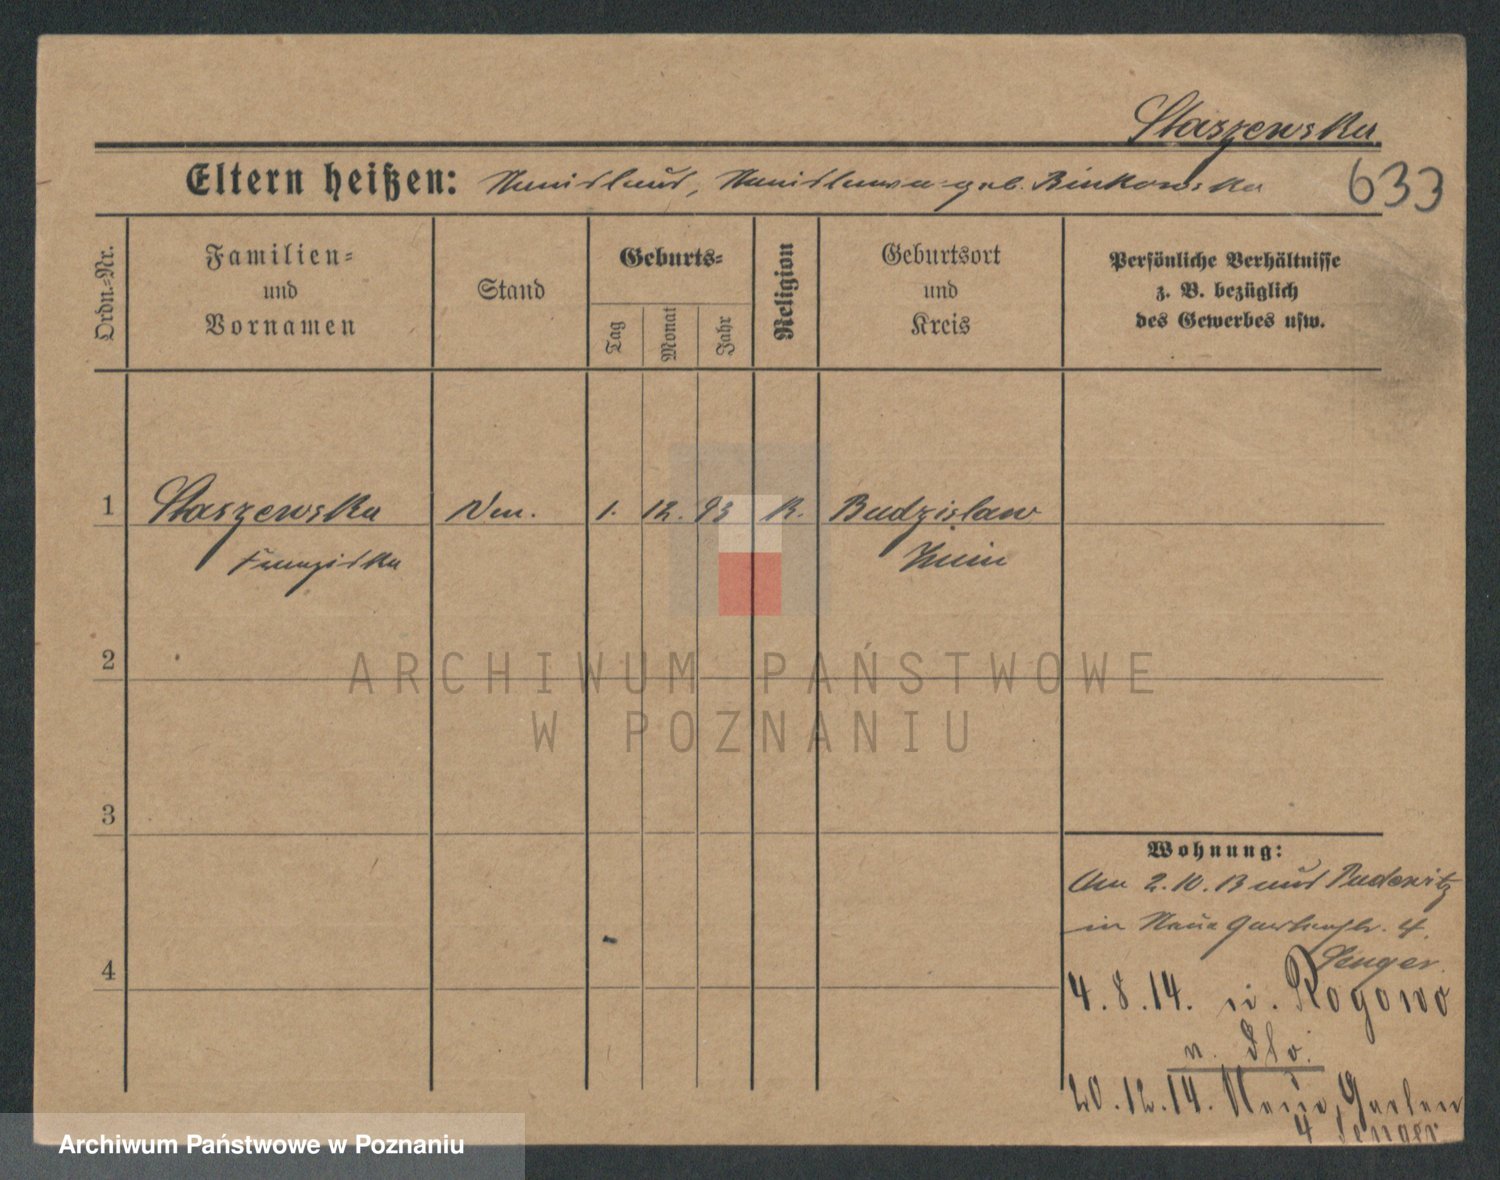 Staszewska
Eltern heißen: Stanislaus, Stanislawa geb. Binkowska
633
Ordn.-Nr.
Familien-
und
Vornamen
Stand
Geburts-
Tag
Monat
Jahr
Religion
Geburtsort
und
Kreis
Persönliche Verhältnisse
z. B. bezüglich
des Gewerbes usw.
1 Staszewska 1. 12. 93 K. Budzislaw
Franziska Znin
2
ARCHIWUM PAŃSTWOWE
W POZNANIU
3
Wohnung:
Am 2.10.13 aus Pudewitz
in Neue Gartenstr. 4.
Senger.
4
4.8.14. n. Rogowo
v. Slo.
20.12.14. Neue Garten
4 Senger
Archiwum Państwowe w Poznaniu